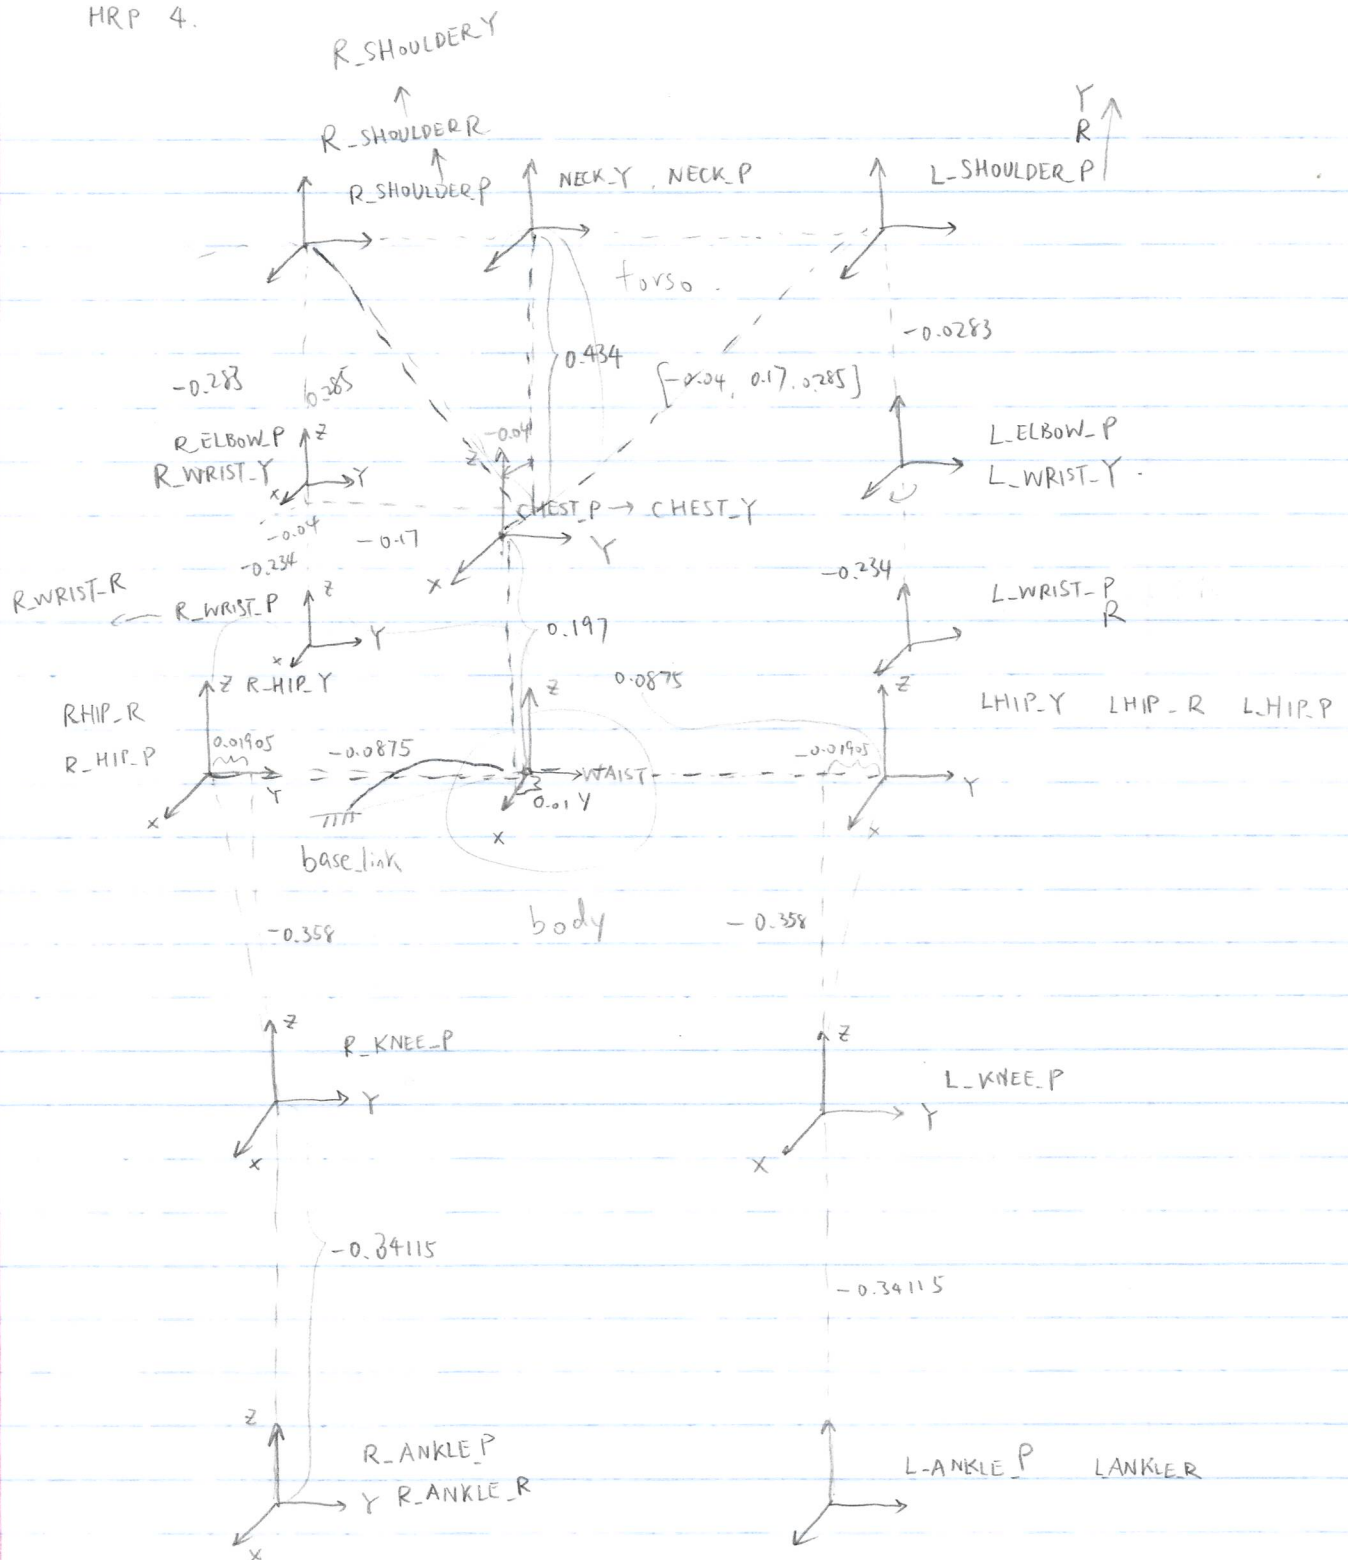 HRP 4.
R_SHOULDERY
R_SHOULDERR
R_SHOULDER_P
NECK_Y , NECK_P
L_SHOULDER_P
Y
R
torso.
-0.0283
0.434
[-0.04, 0.17, 0.285]
-0.283
0.285
R_ELBOW_P
R_WRIST_Y
Z
Y
X
-0.04
Z
L_ELBOW_P
L_WRIST_Y
CHEST_P → CHEST_Y
Y
X
-0.04
-0.17
-0.234
R_WRIST_R
R_WRIST_P
Z
Y
X
-0.234
L_WRIST_P
R
0.197
Z R_HIP_Y
RHIP_R
R_HIP_P
0.01905
-0.0875
Y
X
Z
0.0875
WAIST
0.01 Y
X
Z
LHIP_Y LHIP_R L_HIP_P
-0.01905
Y
X
base_link
body
-0.358
-0.358
Z
R_KNEE_P
Y
X
Z
L_KNEE_P
Y
X
-0.34115
-0.34115
Z
R_ANKLE_P
Y R_ANKLE_R
X
L_ANKLE_P LANKLE_R